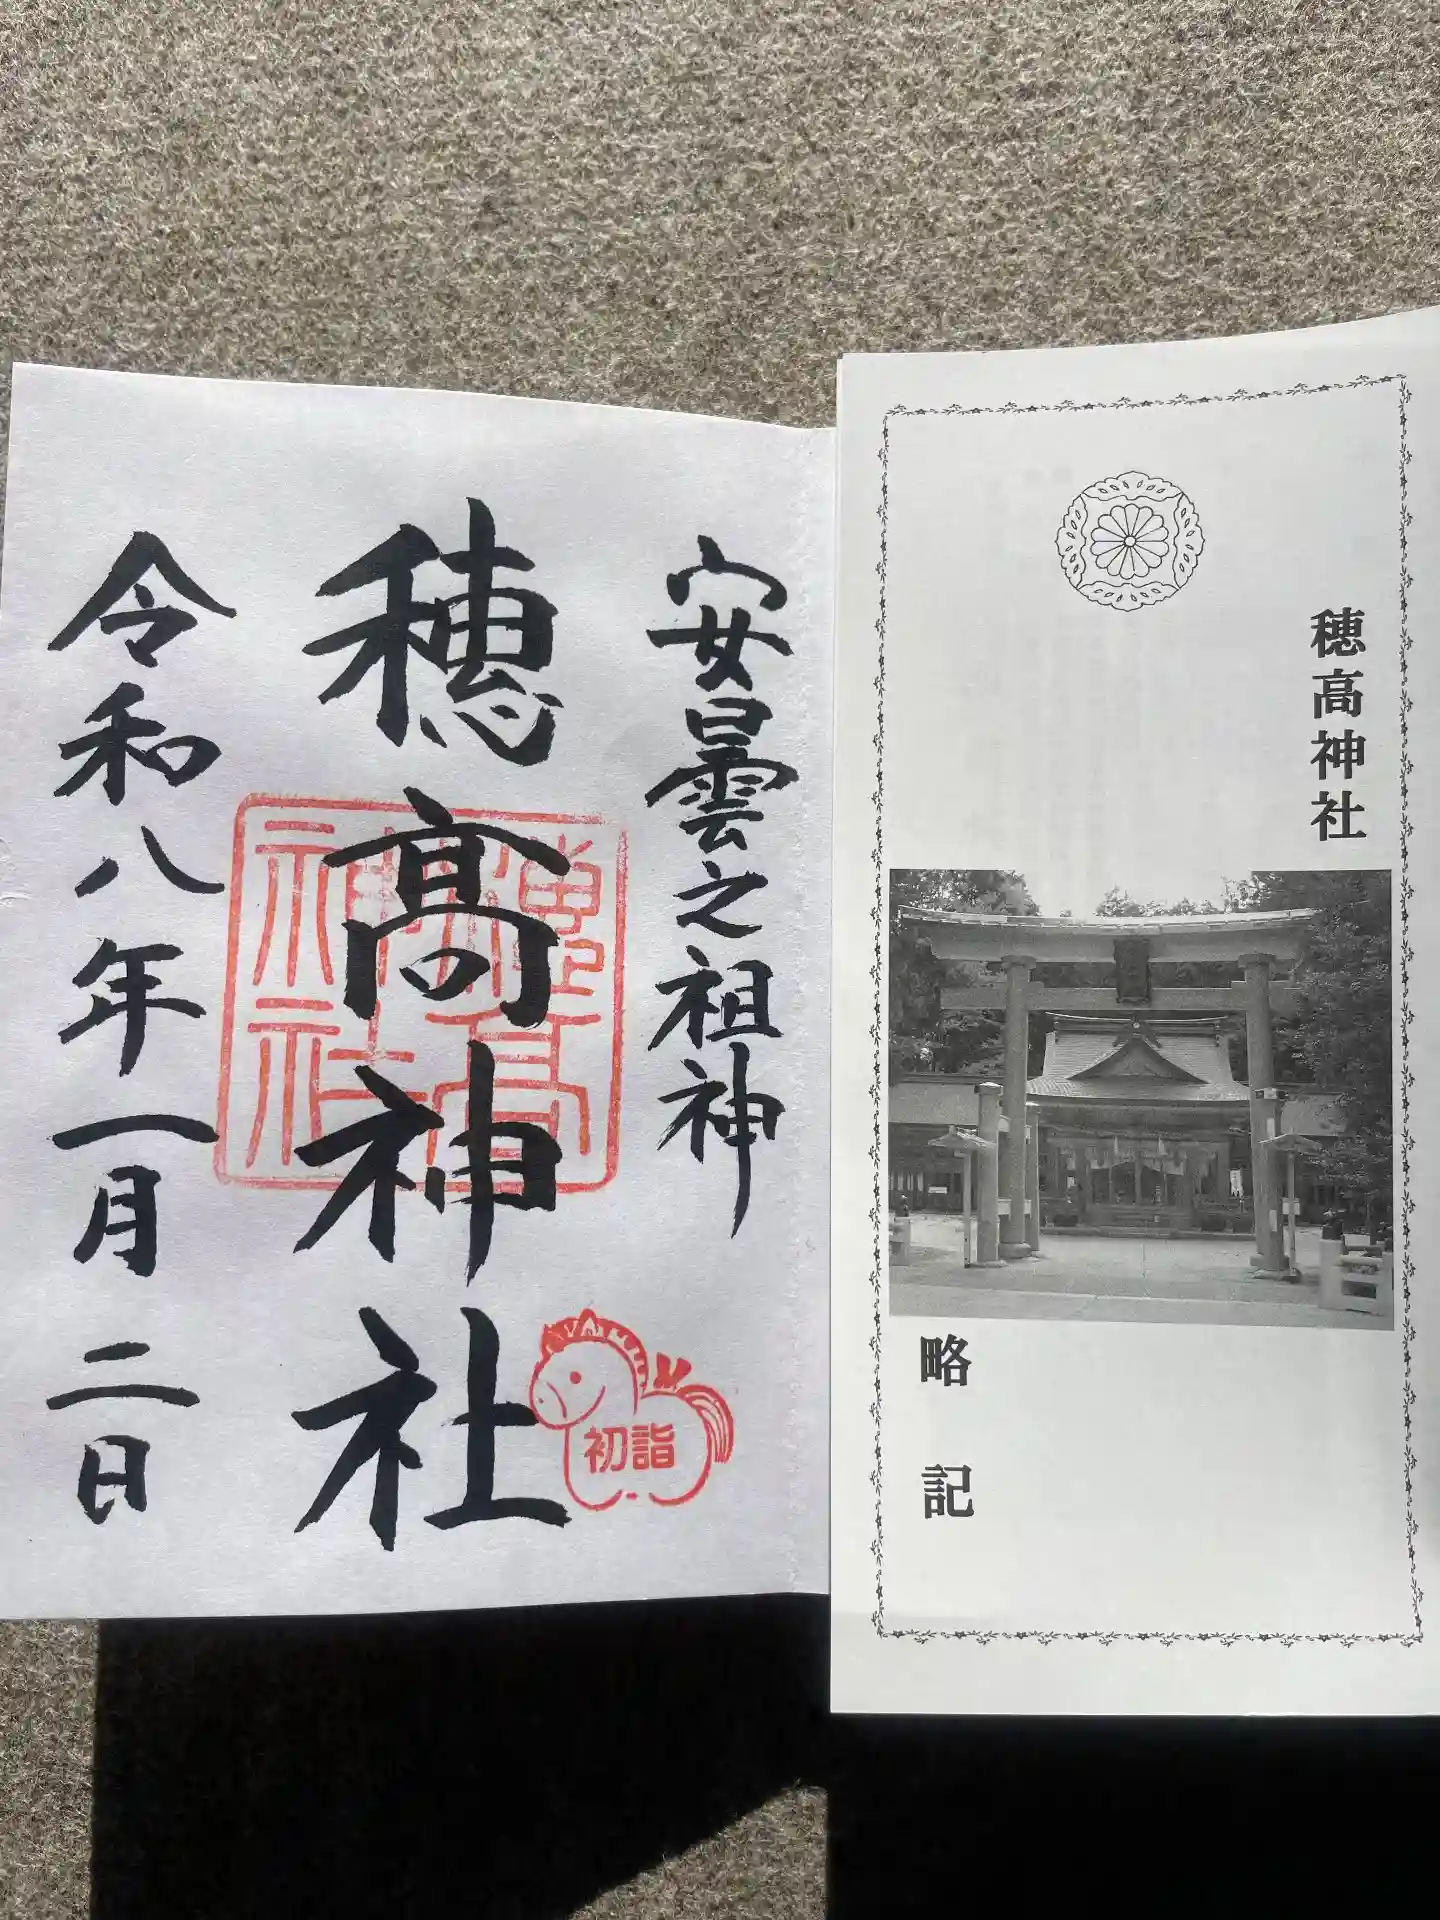 安曇之祖神
穂高神社
令和八年一月二日
穂高
神社
初詣
穂高神社
略記